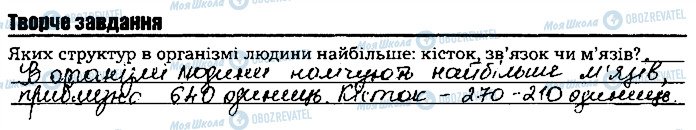 Творче завдання
Яких структур в організмі людини найбільше: кісток, зв'язок чи м'язів?
В організмі людини налічують найбільше м'язів,
приблизно 640 одиниць. Кісток - 270-210 одиниць.